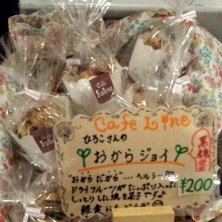 Cafe Line
Cafe Line
ひろこさんの
おからジョイ
"おからだから"…ヘルシー
ドライフルーツがたっぷり入った
しっとりした焼き菓子です♪
¥200